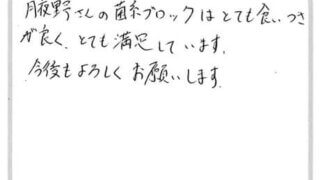 月夜野さんの菌糸ブロックはとても食いつき
が良く、とても満足しています。
今後もよろしくお願いします。